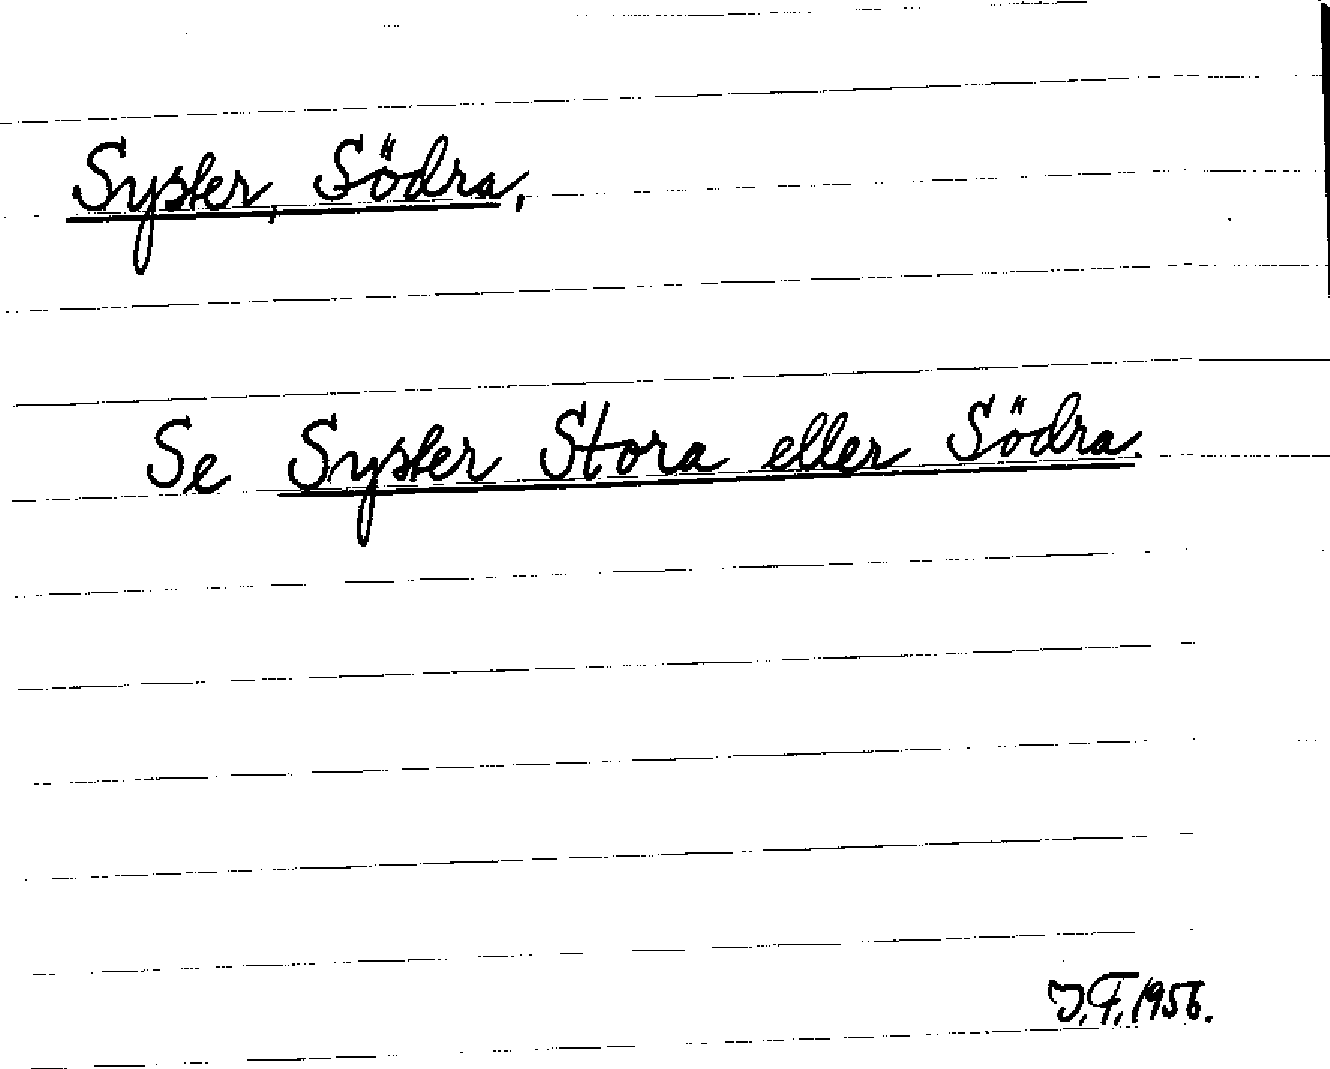 Syster, Södra,
Se Syster Stora eller Södra.
J.F. 1956.